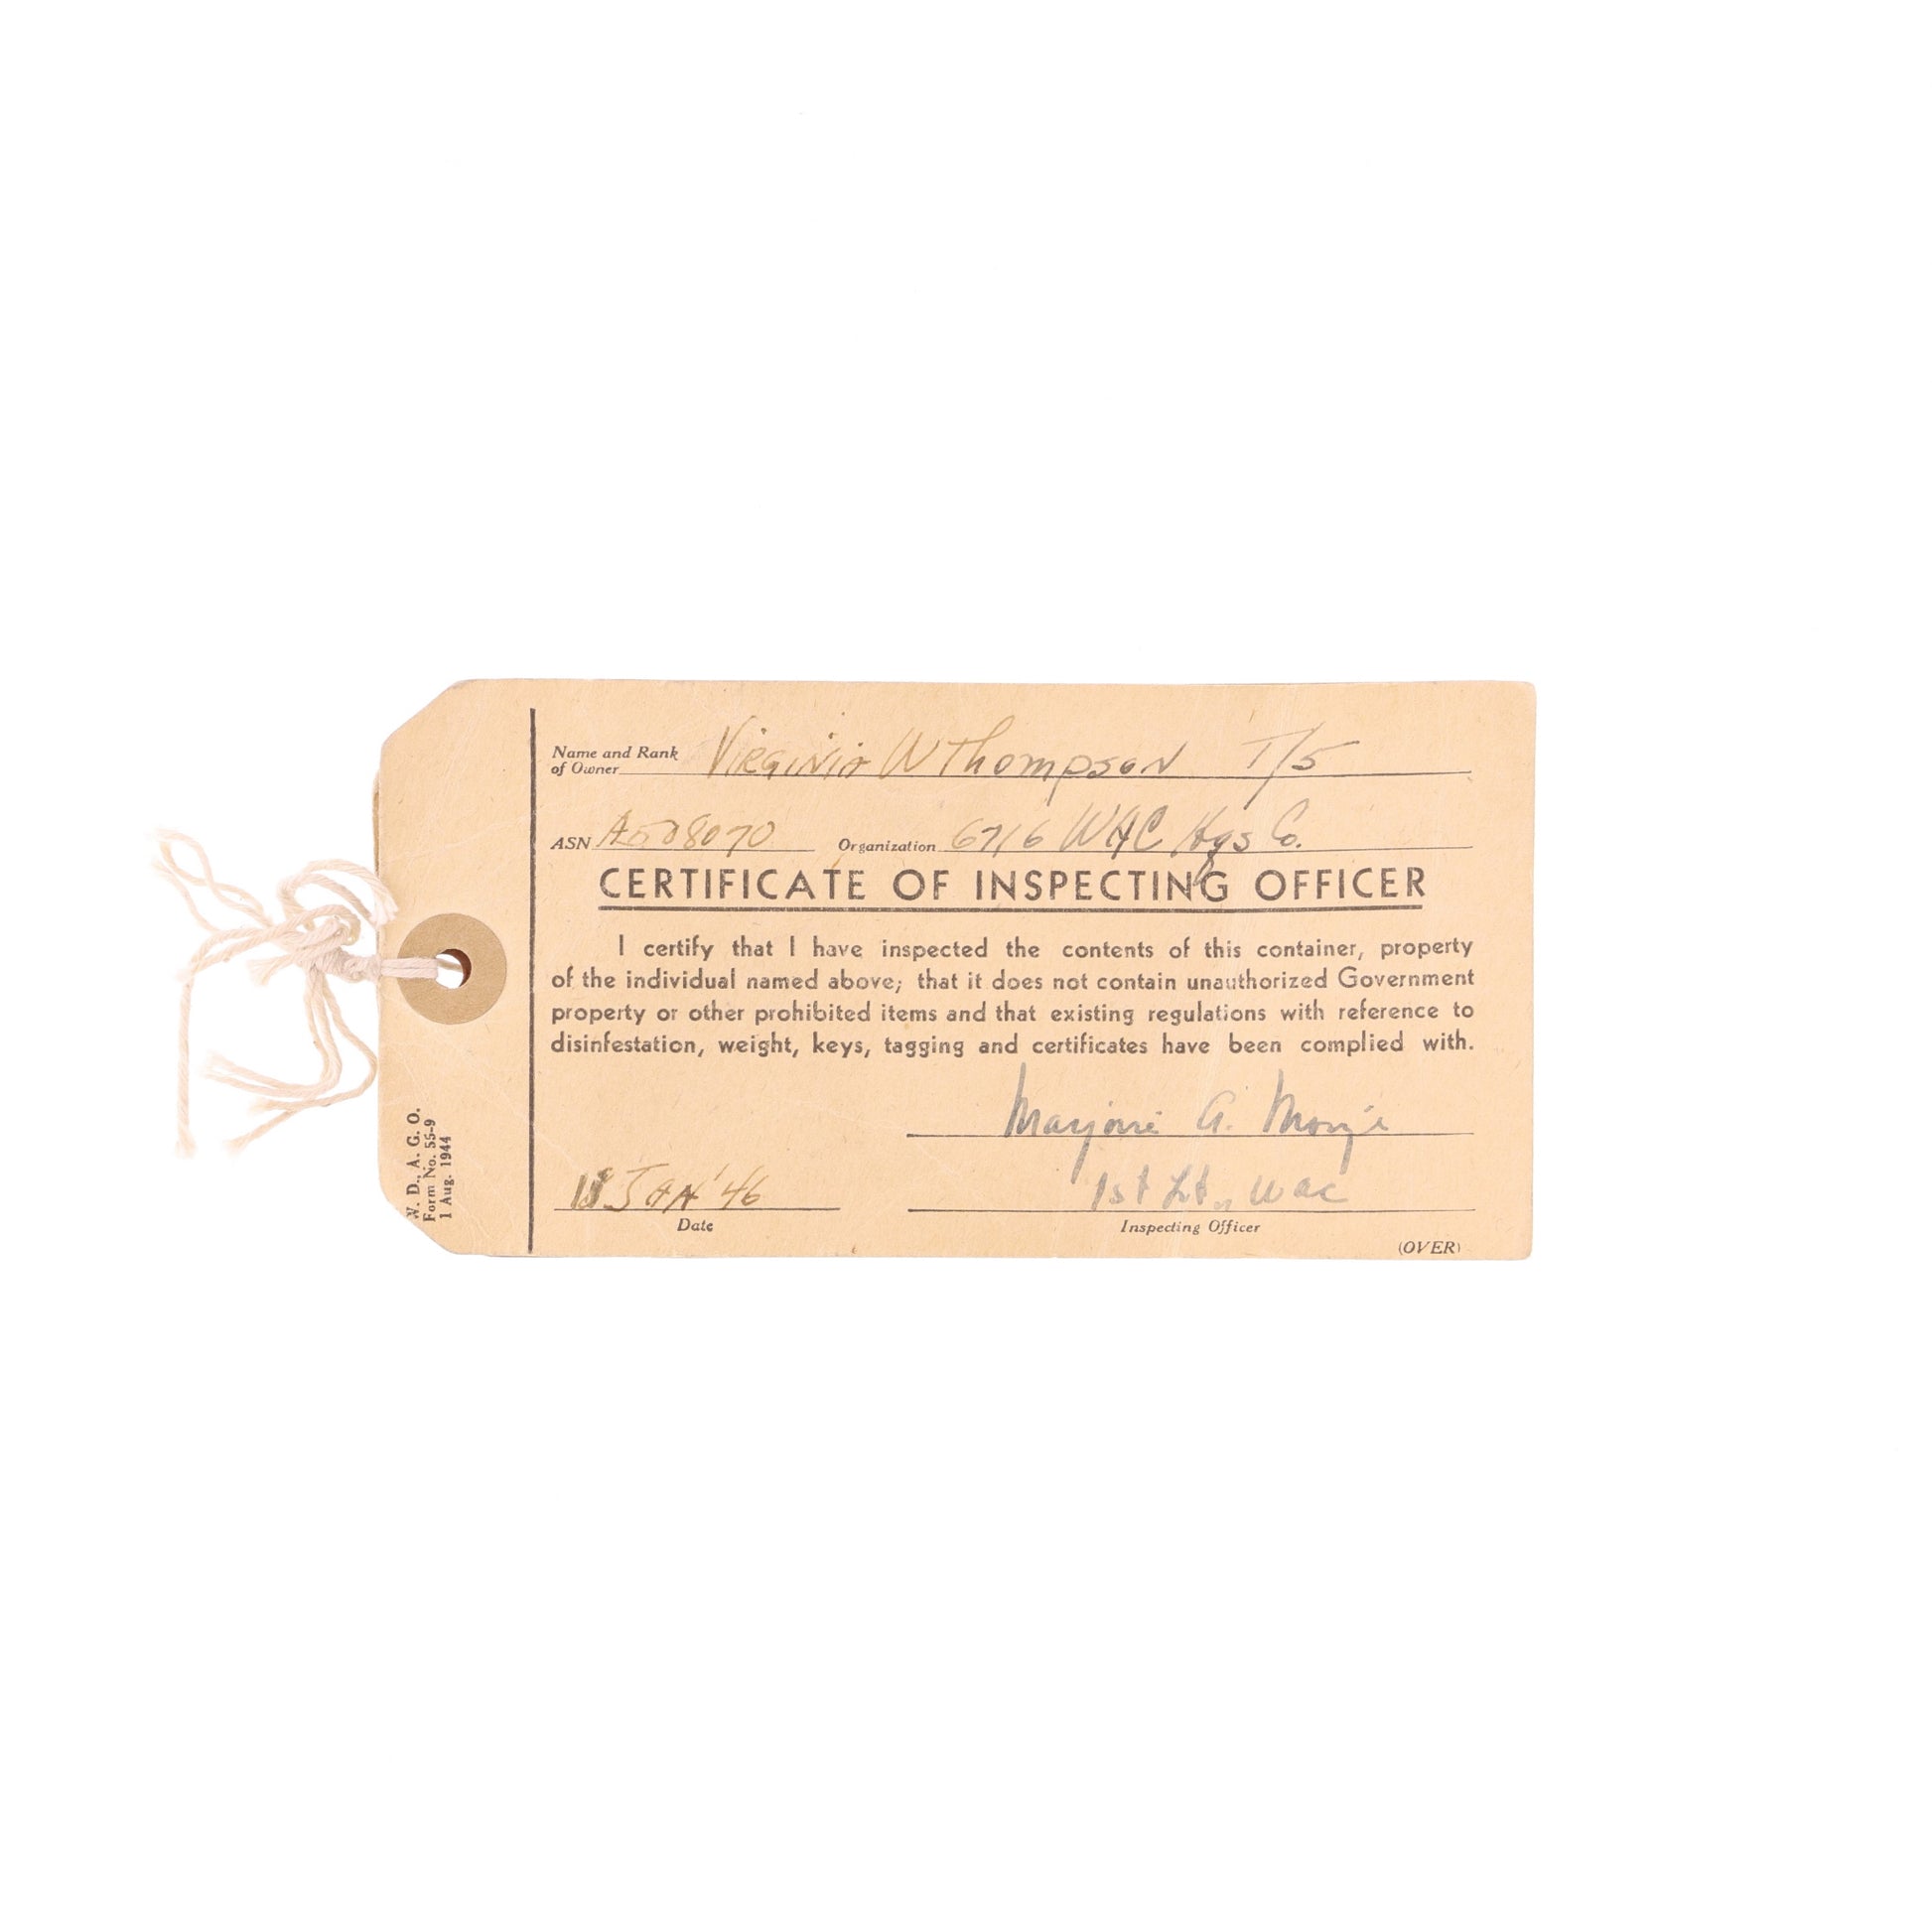 Name and Rank
of Owner Virginia W Thompson T/5
ASN A508070 Organization 6716 WAC Hqs Co.
CERTIFICATE OF INSPECTING OFFICER
I certify that I have inspected the contents of this container, property
of the individual named above; that it does not contain unauthorized Government
property or other prohibited items and that existing regulations with reference to
disinfestation, weight, keys, tagging and certificates have been complied with.
Marjorie A.
JAN '46 1st Lt, WAC
Date Inspecting Officer
(OVER)
W. D., A. G. O.
Form No. 55-9
1 Aug. 1944